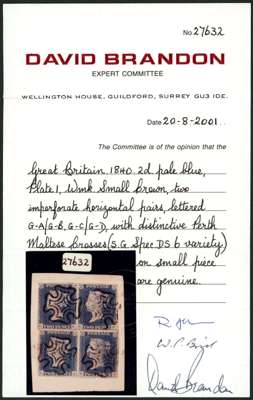 No. 27632
DAVID BRANDON
EXPERT COMMITTEE
WELLINGTON HOUSE, GUILDFORD, SURREY GU3 1DE.
Date 20-8-2001..
The Committee is of the opinion that the
Great Britain 1840. 2d pale blue,
Plate 1, Wmk Small Crown, two
imperforate horizontal pairs, lettered
G-A/G-B, G-C/G-D, with distinctive Perth
Maltese Crosses (S.G. Spec DS 6 variety)
27632
on small piece
are genuine.
David Brandon